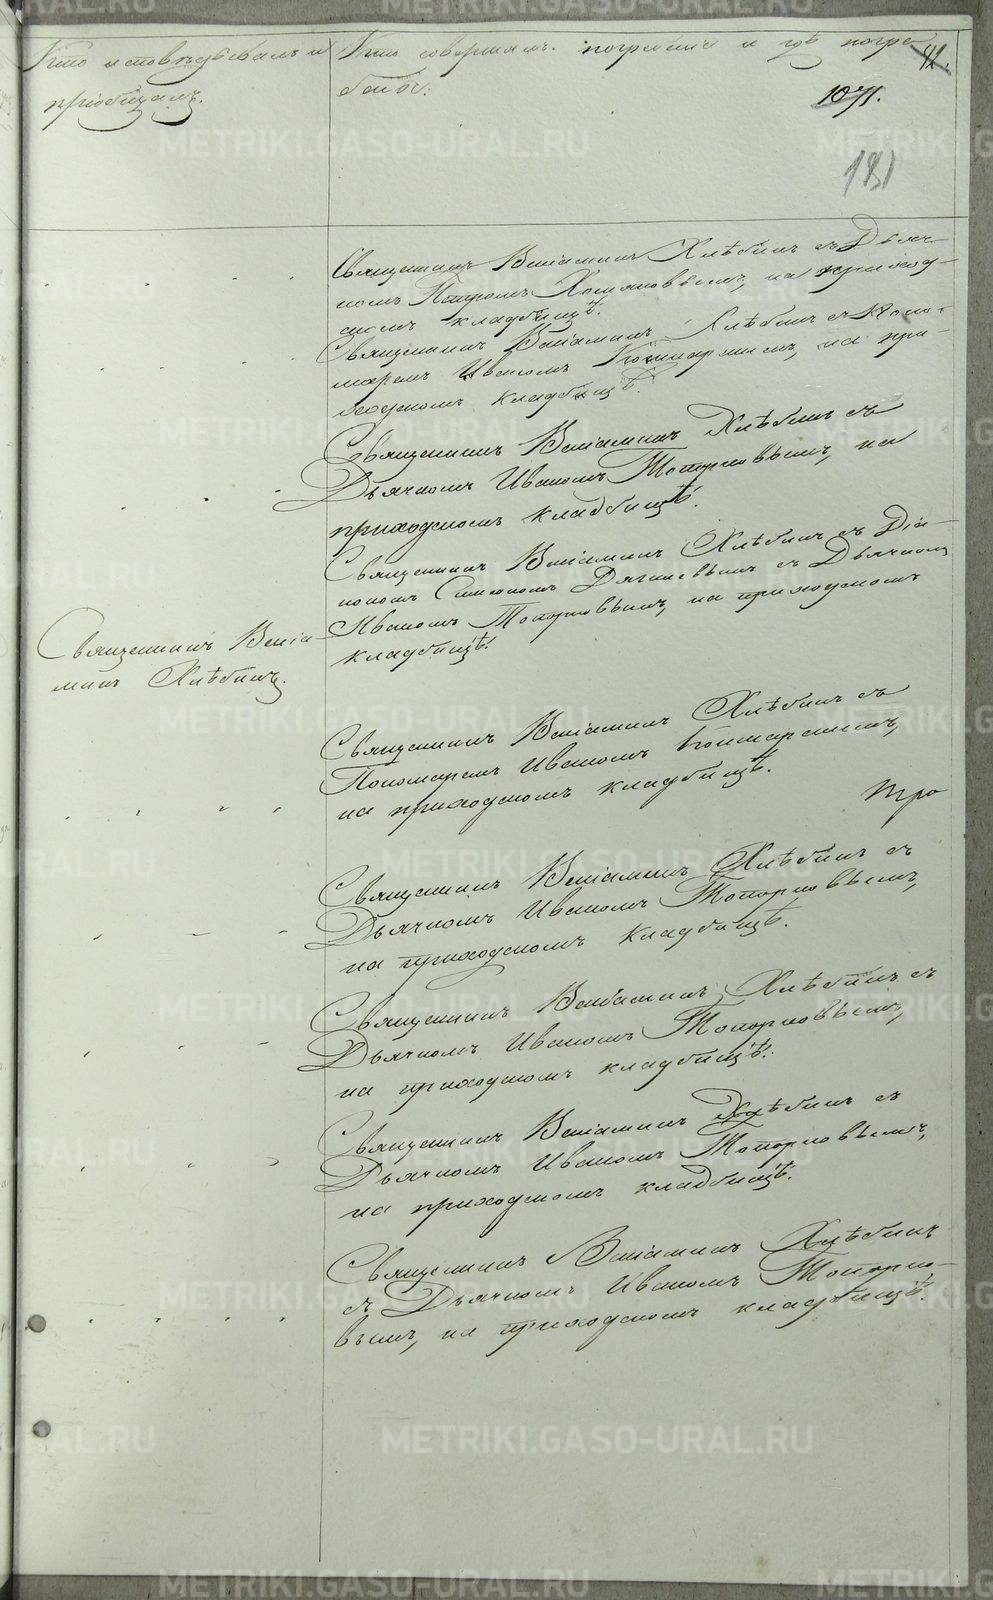 Кто исповѣдывалъ и
пріобщалъ.
Кто совершалъ погребеніе и гдѣ погре-
бены.
41.
1071.
181
Священникъ Веніаминъ Хлѣбинъ съ Дьяч-
комъ Петромъ, на приход-
скомъ кладбищѣ.
Священникъ Веніаминъ Хлѣбинъ съ Поно-
маремъ Иваномъ, на при-
ходскомъ кладбищѣ.
Священникъ Веніаминъ Хлѣбинъ съ
Дьячкомъ Иваномъ Топорковымъ, на
приходскомъ кладбищѣ.
Священникъ Веніаминъ Хлѣбинъ съ Діа-
кономъ Симеономъ Дягилевымъ съ Дьячкомъ
Иваномъ Топорковымъ, на приходскомъ
кладбищѣ.
Священникъ Веніа-
минъ Хлѣбинъ.
Священникъ Веніаминъ Хлѣбинъ съ
Пономаремъ Иваномъ
на приходскомъ кладбищѣ.
Про
Священникъ Веніаминъ Хлѣбинъ съ
Дьячкомъ Иваномъ Топорковымъ,
на приходскомъ кладбищѣ.
Священникъ Веніаминъ Хлѣбинъ съ
Дьячкомъ Иваномъ Топорковымъ,
на приходскомъ кладбищѣ.
Священникъ Веніаминъ Хлѣбинъ съ
Дьячкомъ Иваномъ Топорковымъ,
на приходскомъ кладбищѣ.
Священникъ Веніаминъ Хлѣбинъ
съ Дьячкомъ Иваномъ Топорко-
вымъ, на приходскомъ кладбищѣ.
METRIKI.GASO-URAL.RU